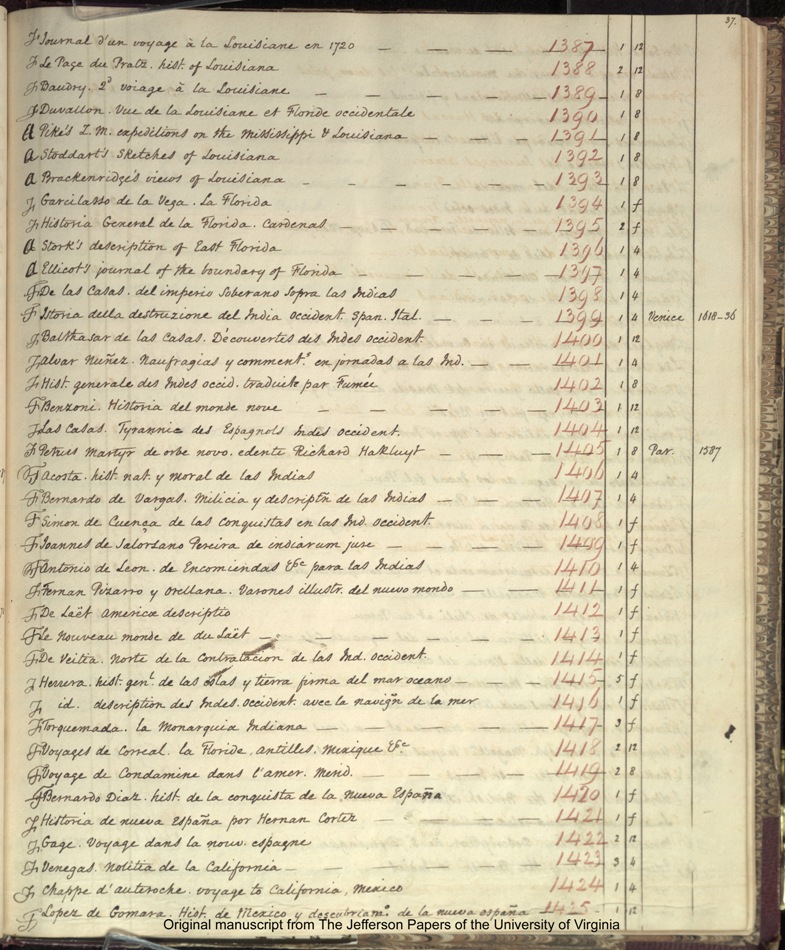 37.
F Journal d'un voyage à la Louisiane en 1720 — — — — 1387 1 12
F Le Page du Pratz. hist. of Louisiana 1388 2 12
F Baudry. 2d voiage à la Louisiane — — — — — 1389 1 8
F Duvallon. Vue de la Louisiane et Floride occidentale 1390 1 8
a Pike's Z. M. expeditions on the Mississippi & Louisiana — — — 1391 1 8
a Stoddart's Sketches of Louisiana 1392 1 8
a Brackenridge's views of Louisiana — — — — — — 1393 1 8
F Garcilasso de la Vega. La Florida 1394 1 f
F Historia General de la Florida. Cardenas — — — — — 1395 2 f
a Stork's description of East Florida 1396 1 4
a Ellicot's journal of the boundary of Florida — — — — — 1397 1 4
F De las Casas. del imperio Soberano Sopra las Indias 1398 1 4
F Istoria della destruzione del India occident. Span. Ital. — — — 1399 1 4 Venice 1618-36
F Balthasar de las Casas. Découvertes des Indes occident. 1400 1 12
F Alvar Nuñez. Naufragias y comment.s en jornadas a las Ind. — — — 1401 1 4
F Hist. generale des Indes occid. traduite par Fumée 1402 1 8
F Benzoni. Historia del monde nove — — — — — 1403 1 12
F Las Casas. Tyrannie des Espagnols Indes occident. 1404 1 12
F Petrus Martyr de orbe novo. edente Richard Hakluyt — — — 1405 1 8 Par. 1587
F Acosta. hist. nat. y moral de las Indias 1406 1 4
F Bernardo de Vargas. Milicia y descriptn de las Indias — — — 1407 1 4
F Simon de Cuença de las conquistas en las Ind. occident. 1408 1 f
F Joannes de Salorsano Pereira de indiarum jure — — — — 1409 1 f
F Antonio de Leon. de Encomiendas &c para las Indias 1410 1 4
F Fernan Pizarro y Orellana. Varones illustr. del nuevo mondo — — — 1411 1 f
F De Laët Americæ descriptio 1412 1 f
F Le Nouveau monde de du Laët — — — — — — 1413 1 f
F De Veitia. Norte de la Contratacion de las Ind. occident. 1414 1 f
F Herrera. hist. genl. de las eslas y tierra firma del mar oceano — — — 1415 5 f
F id. description des Indes. occident. avec la navign de la mer 1416 1 f
F Torquemada. la Monarquia Indiana — — — — — 1417 3 f
F Voyages de Correal. la Floride, Antilles. Mexique &c 1418 2 12
F Voyage de Condamine dans l'amer. Merid. — — — — — 1419 2 8
F Bernardo Diaz. hist. de la conquista de la Nueva España 1420 1 f
F Historia de nueva España por Hernan Cortez — — — — 1421 1 f
F Gage. Voyage dans la nouv. espagne 1422 2 12
F Venegas. Notitia de la California — — — — — — 1423 3 4
F Chappe d'Auteroche. voyage to California, Mexico 1424 1 4
F Lopez de Gomara. Hist. de Mexico y descubriam.o de la nueva españa 1425 1 12
Original manuscript from The Jefferson Papers of the University of Virginia